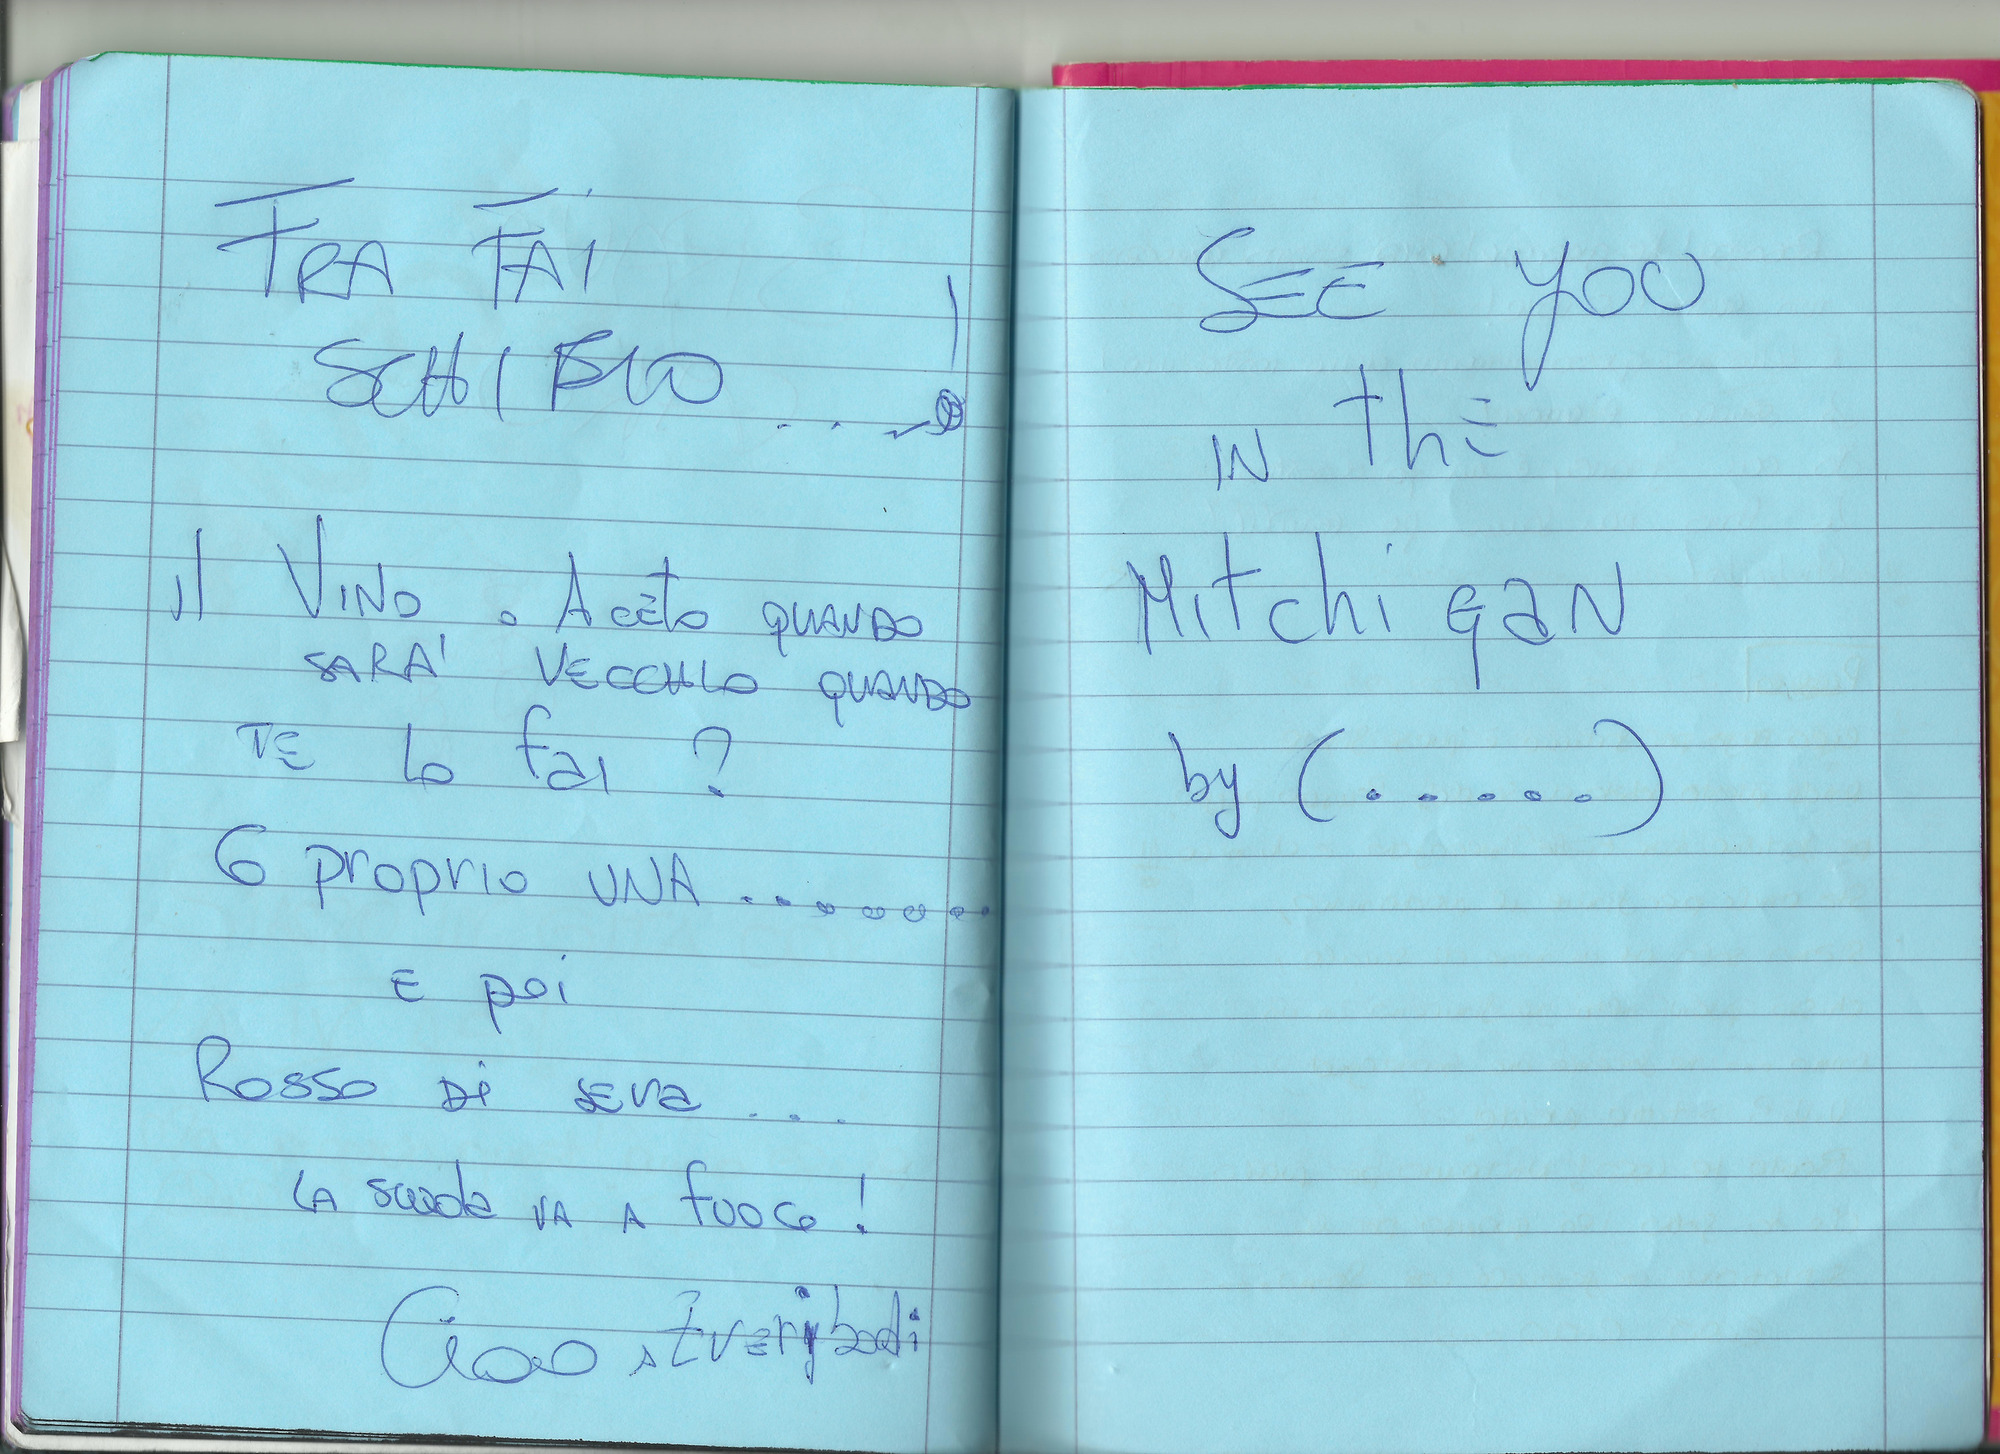 FRA FAI
SCHIFIO ...!
il VINO o Aceto QUANDO
SARA' VECCHIO QUANDO
TE lo fai ?
6 proprio UNA ........
E poi
Rosso di sera ...
LA scuola VA A fuoco !
Ciao Everybodi
SEE YOU
IN thE
Mitchigan
by (.....)